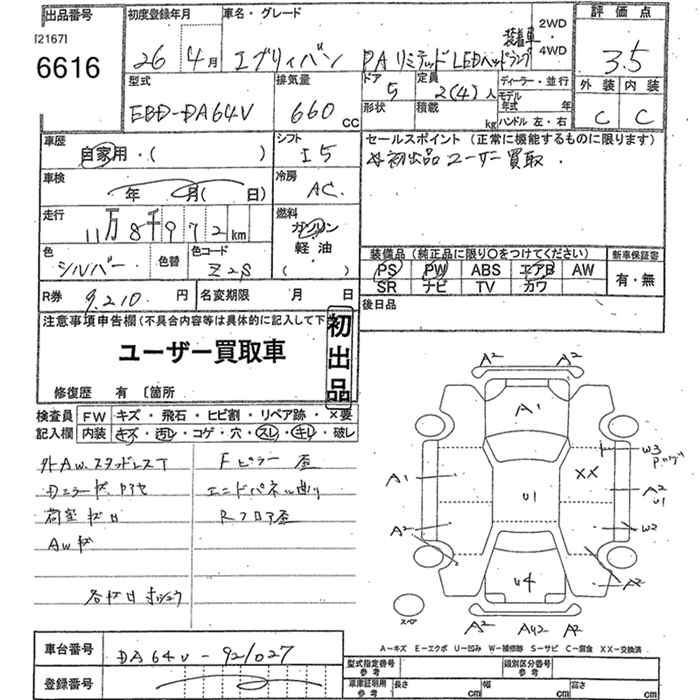 出品番号
[2167]
6616
初度登録年月
26年 4月
車名・グレード
エブリィバン PA リミテッド LEDヘッドランプ 装着車
2WD
・
4WD
評価点
3.5
外装 内装
C C
型式
EBD-DA64V
排気量
660 cc
ドア
5
定員
2(4)人
ディーラー・並行
モデル年式 年
形状
積載 kg
ハンドル 左・右
車歴
自家用・( )
シフト
I5
セールスポイント (正常に機能するものに限ります)
初出品 ユーザー買取.
車検
年 月( 日)
冷房
AC
走行
11万8千972km
燃料
ガソリン
軽油
( )
色
シルバー
色替
色コード
Z2S
装備品(純正品に限り○をつけてください)
PS PW ABS エアB AW
SR ナビ TV カワ
新車保証書
有・無
R券 9,210.円
名変期限 月 日
後日品
注意事項申告欄(不具合内容等は具体的に記入して下
初出品
ユーザー買取車
修復歴 有 〔箇所
検査員 FW キズ・飛石・ヒビ割・リペア跡・×要
記入欄 内装 キズ・汚レ・コゲ・穴・スレ・キレ・破レ
外AW.スタッドレスT
Fピラー歪
エンドパネル曲り
荷室キズ凹
Rフロア歪
AWキズ
A2 A2
A1
W3
A1
XX
U1
A2
U1
A2
W2
U4
A2
スペア
A2 AU2 A2
A-キズ E-エクボ U-凹み W-補修跡 S-サビ C-腐食 XX-交換済
車台番号 DA64V-921027
登録番号
型式指定番号
参考
類別区分番号
参考
車庫証明用
参考
長さ cm 幅 cm 高さ cm